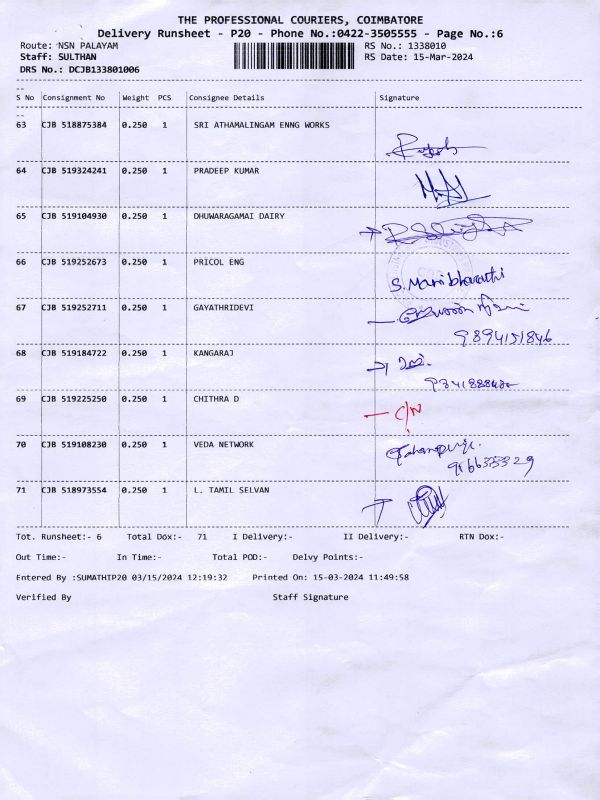 THE PROFESSIONAL COURIERS, COIMBATORE
Delivery Runsheet - P20 - Phone No.:0422-3505555 - Page No.:6
Route: NSN PALAYAM RS No.: 1338010
Staff: SULTHAN RS Date: 15-Mar-2024
DRS No.: DCJB133801006
S No Consignment No Weight PCS Consignee Details Signature
63 CJB 518875384 0.250 1 SRI ATHAMALINGAM ENNG WORKS
64 CJB 519324241 0.250 1 PRADEEP KUMAR
65 CJB 519104930 0.250 1 DHUWARAGAMAI DAIRY
66 CJB 519252673 0.250 1 PRICOL ENG S. Manibharathi
67 CJB 519252711 0.250 1 GAYATHRIDEVI
9894151846
68 CJB 519184722 0.250 1 KANGARAJ
69 CJB 519225250 0.250 1 CHITHRA D C/N
70 CJB 519108230 0.250 1 VEDA NETWORK
71 CJB 518973554 0.250 1 L. TAMIL SELVAN
Tot. Runsheet:- 6 Total Dox:- 71 I Delivery:- II Delivery:- RTN Dox:-
Out Time:- In Time:- Total POD:- Delvy Points:-
Entered By :SUMATHIP20 03/15/2024 12:19:32 Printed On: 15-03-2024 11:49:58
Verified By Staff Signature